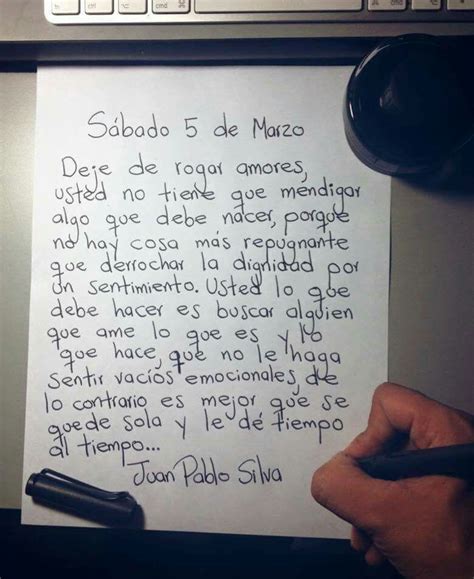 Sábado 5 de Marzo
Deje de rogar amores,
usted no tiene que mendigar
algo que debe nacer, porque
no hay cosa más repugnante
que derrochar la dignidad por
un sentimiento. Usted lo que
debe hacer es buscar alguien
que ame lo que es y lo
que hace, que no le haga
sentir vacíos emocionales, de
lo contrario es mejor que se
quede sola y le dé tiempo
al tiempo...
Juan Pablo Silva